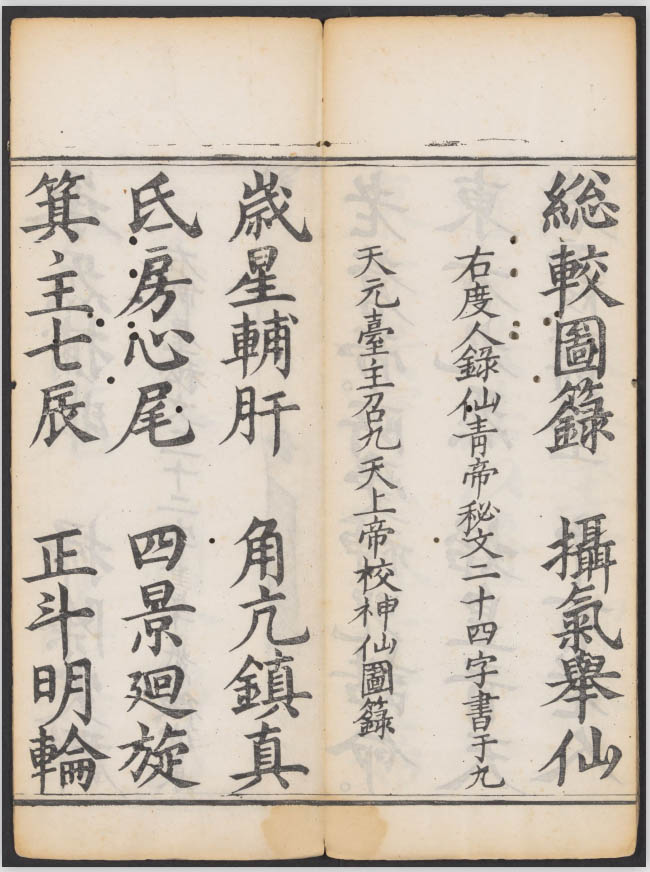 総較圖籙　攝氣舉仙
右度人錄仙青帝秘文二十四字書于九
天元臺主召九天上帝校神仙圖籙
歲星輔肝　角亢鎮真
氐房心尾　四景廻旋
箕主七辰　正斗明輪